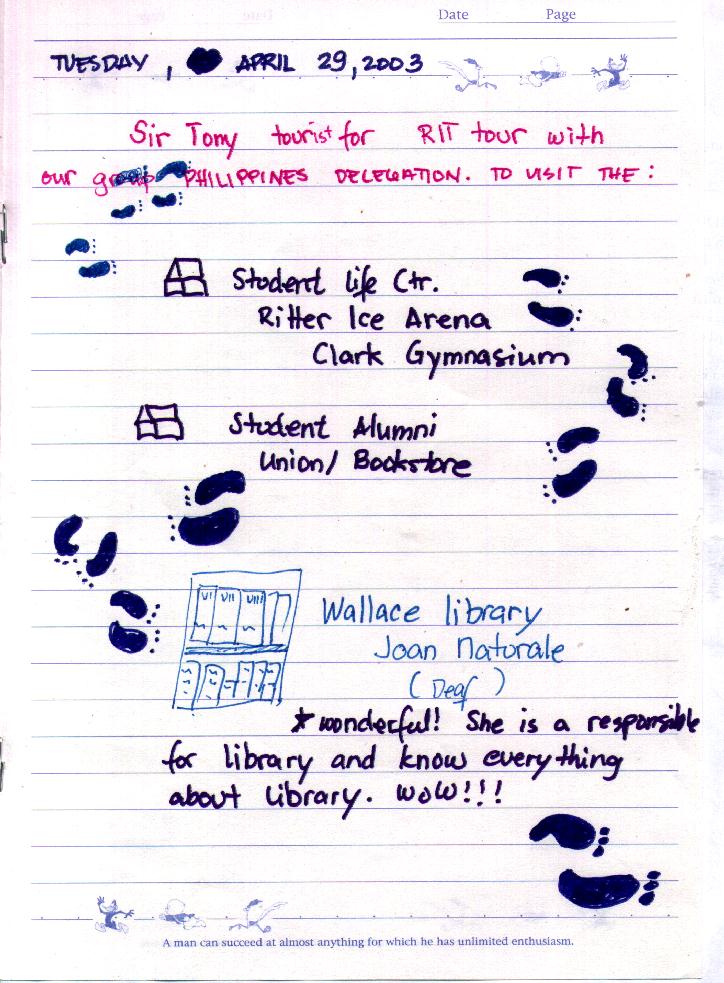 Date Page
TUESDAY, APRIL 29, 2003
Sir Tony tourist for RIT tour with
our group PHILIPPINES DELEGATION. TO VISIT THE :
Student life Ctr.
Ritter Ice Arena
Clark Gymnasium
Student Alumni
Union/ Bookstore
VI VII VIII
Wallace library
Joan Naturale
(Deaf)
* wonderful! She is a responsible
for library and know everything
about Library. WOW!!!
A man can succeed at almost anything for which he has unlimited enthusiasm.